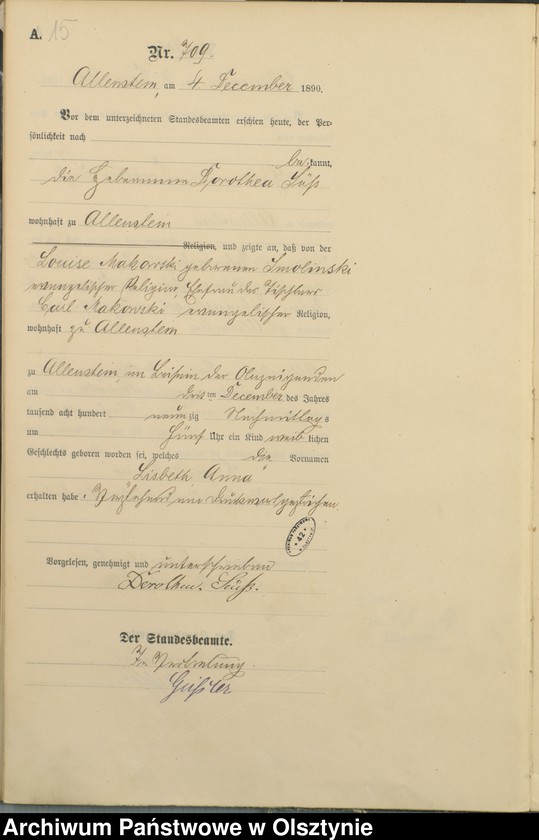 A. 15
Nr. 709.
Allenstein, am 4. December 1890.
Vor dem unterzeichneten Standesbeamten erschien heute, der Per-
sönlichkeit nach
bekannt,
die Hebamme Dorothea Süß
wohnhaft zu Allenstein
Religion, und zeigte an, daß von der
Louise Makowski geborenen Smolinski
evangelischer Religion, Ehefrau des Tischlers
Carl Makowski evangelischer Religion,
wohnhaft zu Allenstein
zu Allenstein, im Beisein der Anzeigenden
am drit ten December des Jahres
tausend acht hundert neun zig Nachmittags
um fünf Uhr ein Kind weib lichen
Geschlechts geboren worden sei, welches die Vornamen
Lisbeth Anna
erhalten habe. Vorstehend ein Druckwort gestrichen.
42
Vorgelesen, genehmigt und unterschrieben
Dorothea Süß.
Der Standesbeamte.
In Vertretung
Geißler
Archiwum Państwowe w Olsztynie